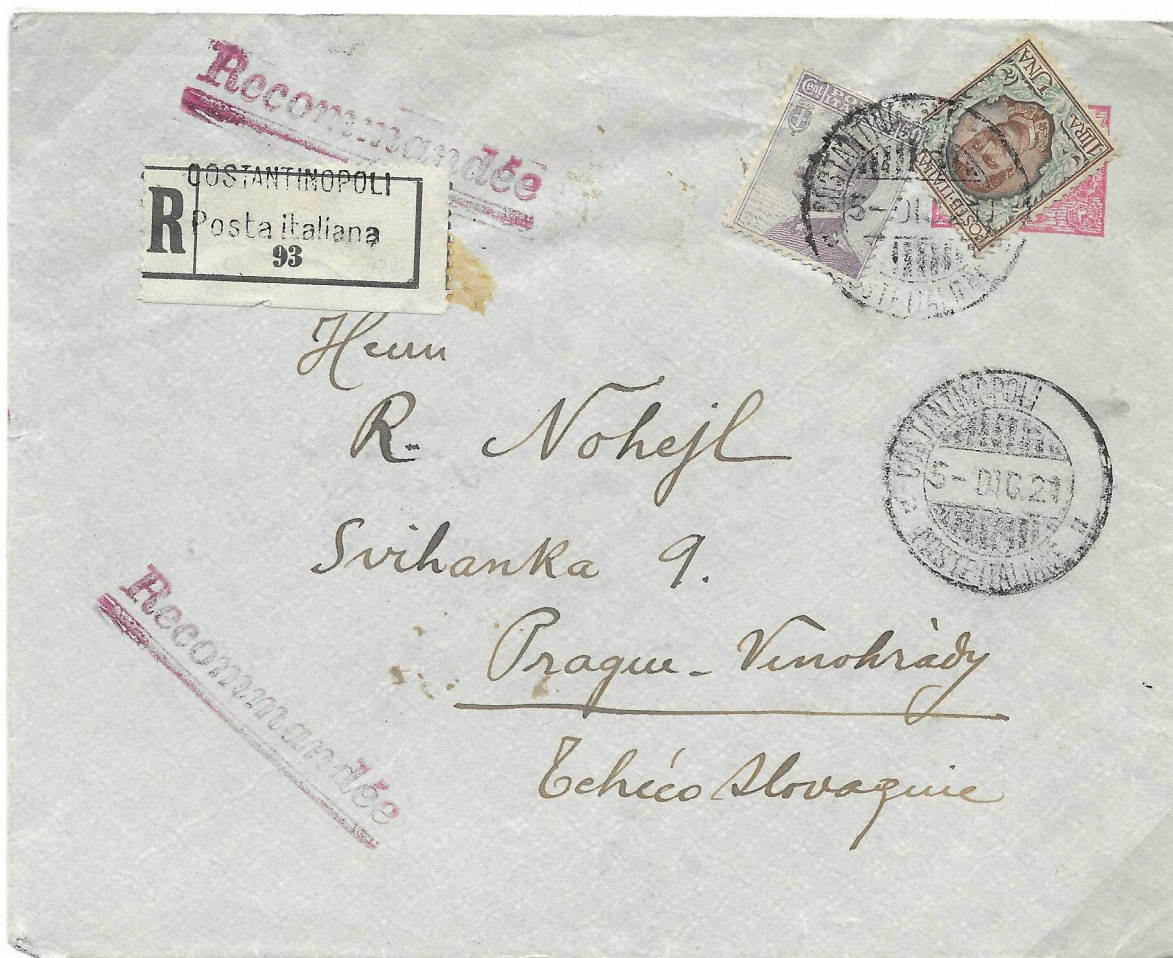 Recommandée
COSTANTINOPOLI
R Posta italiana
93
LIRA UNA
POSTE ITALIANE
Herrn
R. Nohejl
COSTANTINOPOLI
5-DIC.21
POSTE ITALIANE
Svihanka 9.
Prague-Vinohrády
Tchéco Slovaquie
Recommandée